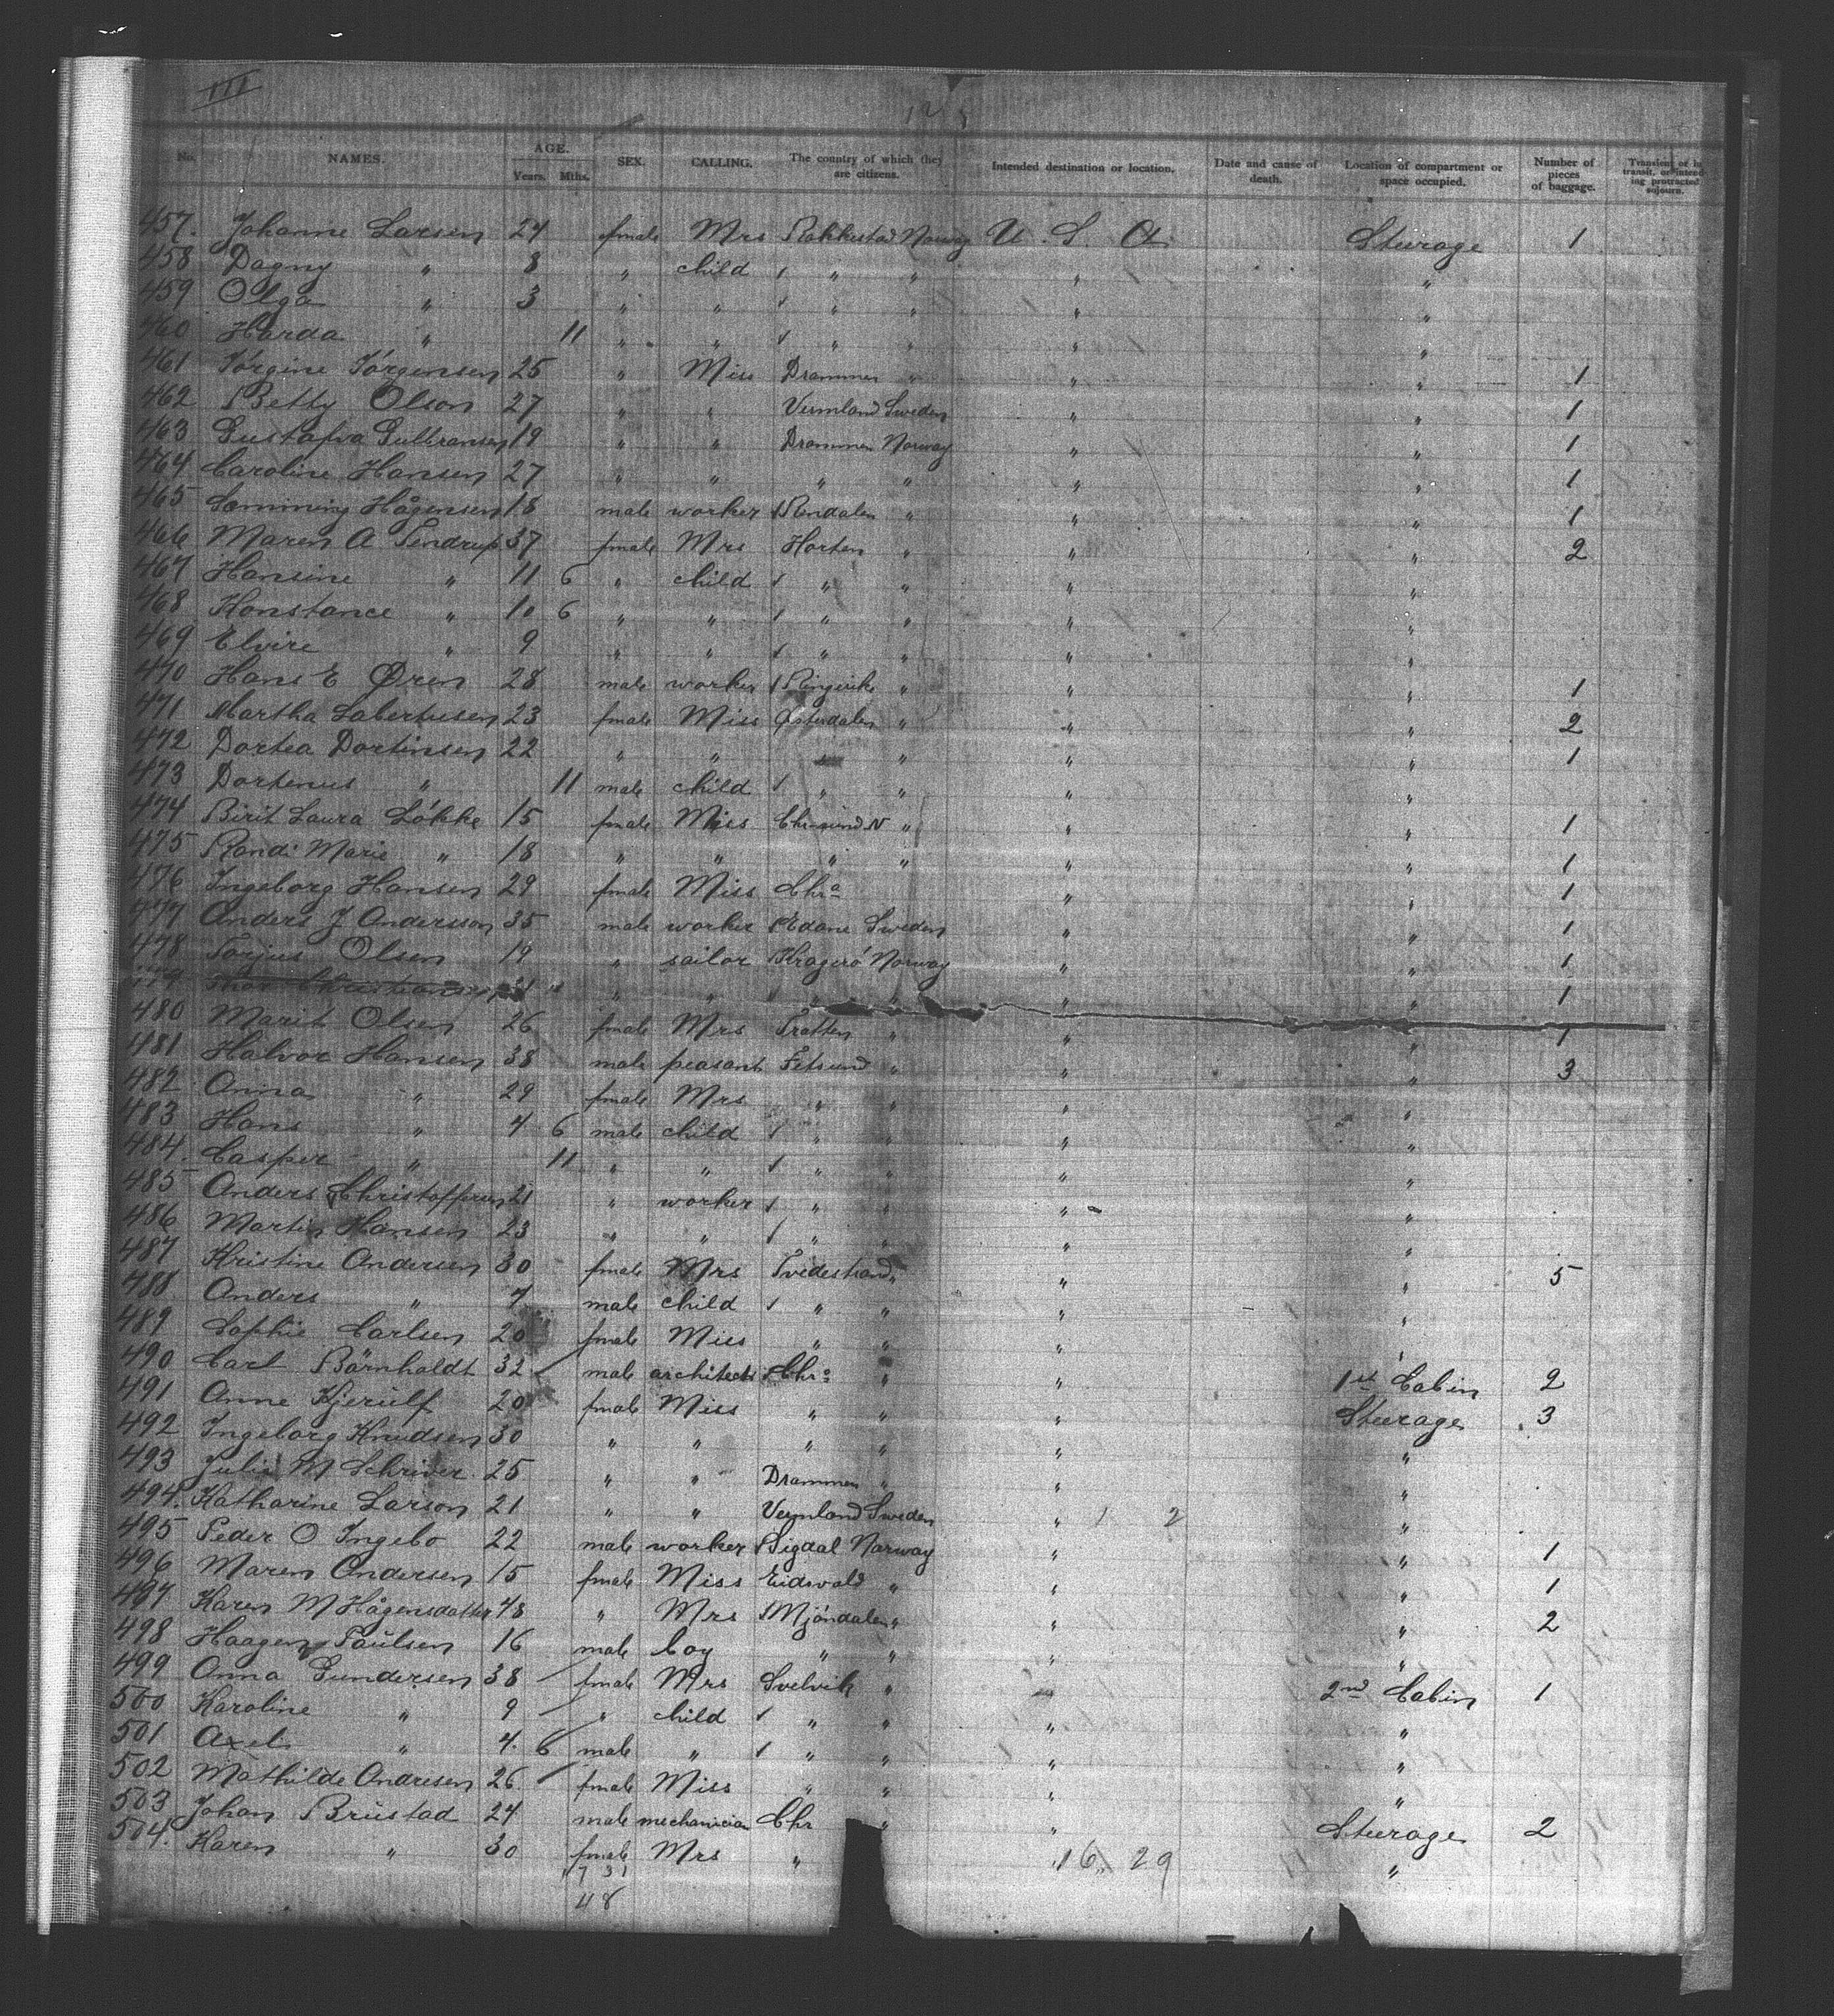 III
125
No. NAMES. AGE. Years. Mths. SEX. CALLING. The country of which they are citizens. Intended destination or location. Date and cause of death. Location of compartment or space occupied. Number of pieces of baggage. Transient or in transit, or intending protracted sojourn.
457. Johanne Larsen 24 fmale Mrs Rakkestad Norway U. S. A. Steerage 1
458 Dagny " 8 " child / " " " "
459 Olga " 3 " " / " " " "
460 Harda " 11 " " / " " " "
461 Jörgine Jörgensen 25 " Miss Drammen " " " 1
462 Betty Olson 27 " " Vermland Sweden " " 1
463 Gustafva Gulbransen 19 " " Drammen Norway " " 1
464 Caroline Hansen 27 " " " " " " 1
465 Hågensen 18 male worker / Rendalen " " " 1
466 Maren A Tendrup 37 fmale Mrs Horten " " " 2
467 Hansine " 11 6 " child / " " " "
468 Konstance " 10 6 " " / " " " "
469 Elvire " 9 " " / " " " "
470 Hans E Ören 28 male worker / Ringerike " " " 1
471 Martha Labertusen 23 fmale Miss Österdalen " " " 2
472 Dortea Dortinsen 22 " " " " " " 1
473 Dortenus " 11 male child / " " " "
474 Birit Laura Lökke 15 fmale Miss Chr.sund N " " " 1
475 Randi Marie " 18 " " " " " " 1
476 Ingeborg Hansen 29 fmale Miss Chra " " 1
477 Anders J Andersson 35 male worker / Edane Sweden " " 1
478 Torjus Olsen 19 " sailor / Kragerö Norway " " 1
479 Thor Christiansen 21 " " " / " " " " 1
480 Marit Olsen 26 fmale Mrs Tratten " " " 1
481 Halvor Hansen 38 male peasant Fetsund " " " 3
482 Anna " 29 fmale Mrs " " " "
483 Hans " 4 6 male child / " " " "
484. Casper " 11 " " / " " " "
485 Anders Christoffersen 21 " worker / " " " "
486 Martin Hansen 23 " " / " " " "
487 Kristine Andersen 30 fmale Mrs Tvedestrand " " " 5
488 Anders " 7 male child / " " " "
489 Sophie Carlsen 20 fmale Miss " " " "
490 Carl Bärnholdt 32 male architect / Chra " " 1st Cabin 2
491 Anne Kjerülf 20 fmale Miss " " " Steerage 3
492 Ingeborg Knudsen 30 " " " " " "
493 Julie M Schriver 25 " " Drammen " " "
494. Katharine Larson 21 " " Vermland Sweden " 1 2 "
495 Peder O Ingebo 22 male worker / Sigdal Norway " " 1
496 Maren Andersen 15 fmale Miss Eidsvold " " " 1
497 Karen M Hågensdatter 48 " Mrs / Mjöndalen " " " 2
498 Haagen Paulsen 16 male boy " " " "
499 Anna Gundersen 38 fmale Mrs Svelvik " " 2nd Cabin 1
500 Karoline " 9 " child / " " " "
501 Axel " 4. 6 male " / " " " "
502 Mathilde Andresen 26 fmale Miss " " " "
503 Johan Brüstad 24 male mechanician Chr " " Steerage 2
504. Karen " 30 fmale Mrs " " "
17 31 16 29
48